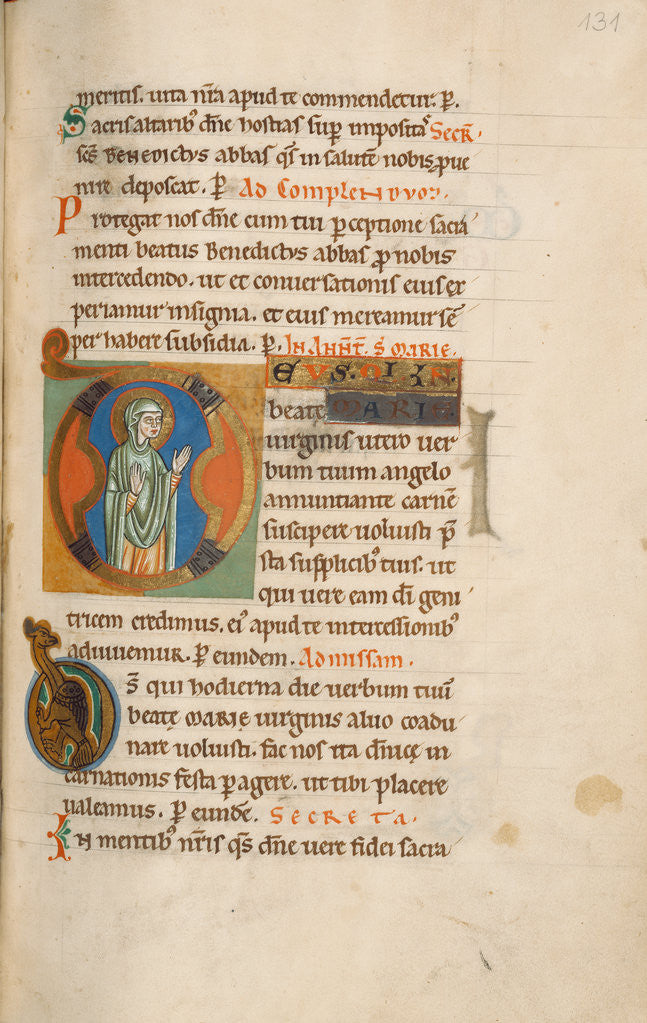 131
meritis. uita nr̄a apud te commendetur. ꝑ.
Sacris altarib᷒ dn̄e hostias sup̄ imposita᷒ Secr̄.
scs̄ Benedictvs abbas qs̄ in salutē nobis ꝓue
nire deposcat. ꝑ Ad Complendvm.
Protegat nos dn̄e cum tui ꝑceptione sacra
menti beatus Benedictvs abbas ꝓ nobis
intercedendo. ut et conuersationis eius ex
periamur insignia. et eius mereamur sē
per habere subsidia. ꝑ. In Annt̄. s̄ Marie.
Evs. qi d̄n.
beate Marie.
uirginis utero uer
bum tuum angelo
annuntiante carnē
suscipere uoluisti p̄
sta supplicib᷒ tuis. ut
qui uere eam di̅ geni
tricem credimus. ei᷒ apud te intercessionib᷒
adiuuemur. ꝑ eundem. Ad missam.
Ds̄ qui hodierna die uerbum tuū
beatę Marię uirginis aluo coadu
nare uoluisti. fac nos ita dn̄icę in
carnationis festa ꝑagere. ut tibi placere
ualeamus. ꝑ eundē. Secreta.
In mentib᷒ nr̄is qs̄ dn̄e uere fidei sacra